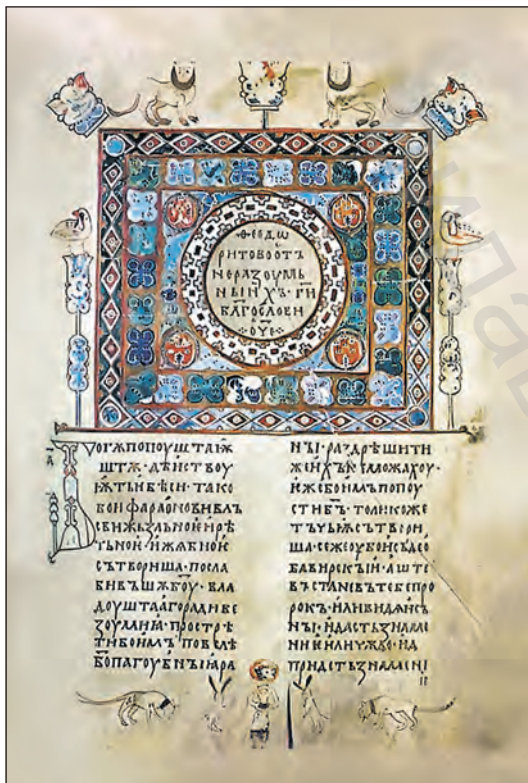 ·ѳеодѡ
ритовоотъ
неразоумь
ныихъ·г҃и
благослови
·оче·
огѫпопоуштаѭ
штѫ·дѣиствоу
ѭтьибѣси·тако
боифараоновивлъ
тьноѥ·ижабноѥ
сътвориша·посла
бивъшѫбоу·вла
доуштаагорадибе
зоумиꙗ·прострѣ
тибоимъ·повелѣ
бопагоубныꙗра
ны·раздрѣшити
жеихънеможахоу·
ижебоимъпопоу
стибъ·толикоже
тъчьѭсътвори
ша·сежеоубо
бавирскыи·аште
въстаневътебепро
рокъ·иливидѧисъ
ны·идастьзнаме
ниѥиличюдо·ид
придетьзнамени